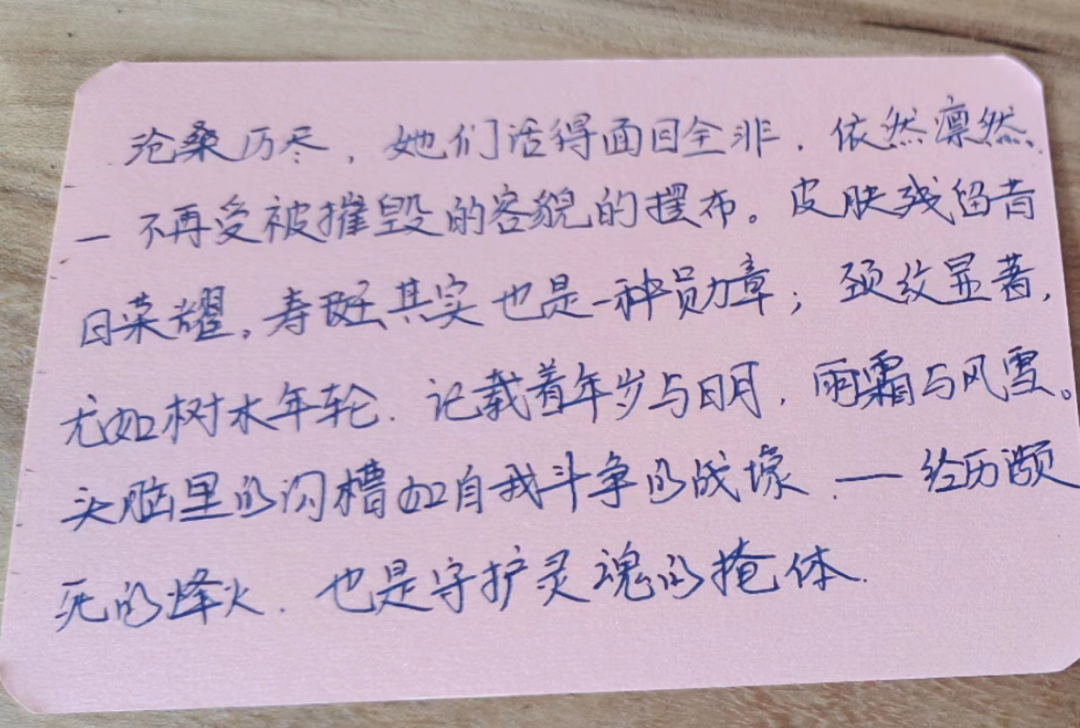 沧桑历尽，她们活得面目全非，依然凛然，
一不再受被摧毁的容貌的摆布。皮肤残留昔
日荣耀，寿斑其实也是一种勋章；颈纹显著，
尤如树木年轮，记载着年岁与日月，雨霜与风雪。
头脑里的沟槽如自我斗争的战壕，一经历濒
死的烽火，也是守护灵魂的掩体.